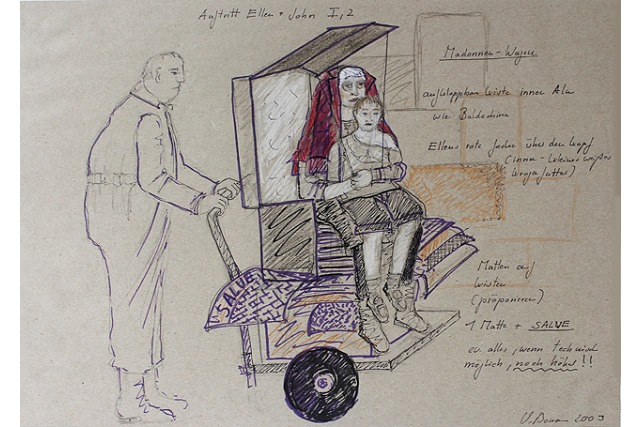 Auftritt Ellen + John I,2
Madonnen-Wagen
aufklappbare Kiste innen Alu
wie Baldachin
Ellens rote Jacke über den Kopf
(innen - kleines weißes
SALVE
Matten auf
Kisten
(präparieren)
1 Matte + SALVE
ev. alles, wenn technisch
möglich, noch höher!!
2003